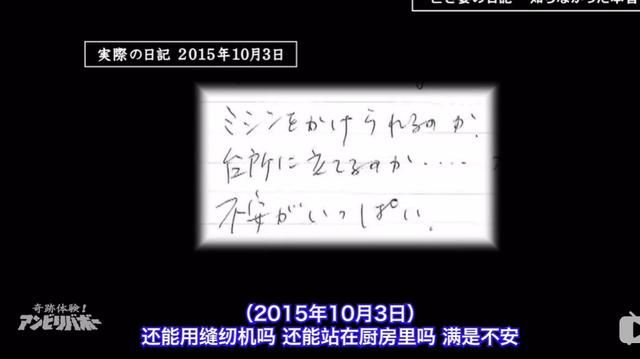 実際の日記 2015年10月3日
ミシンをかけられるのか、
台所に立てるのか‥‥
不安がいっぱい。
奇跡体験!
アンビリバボー
（2015年10月3日）
还能用缝纫机吗 还能站在厨房里吗 满是不安